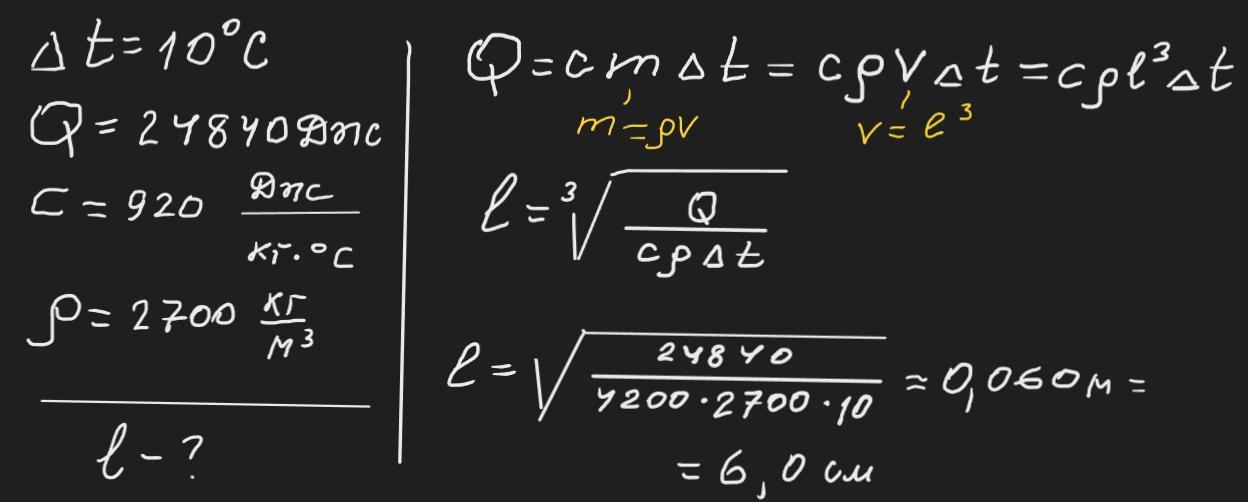 Δt=10°C
Q=24840Дж
c=920 Дж/кг·°C
ρ=2700 кг/м³
l-?
Q=cmΔt=cρVΔt=cρl³Δt
m=ρV
V=l³
l=³√(Q/cρΔt)
l=√(24840/4200·2700·10)≈0,060м=
=6,0 см